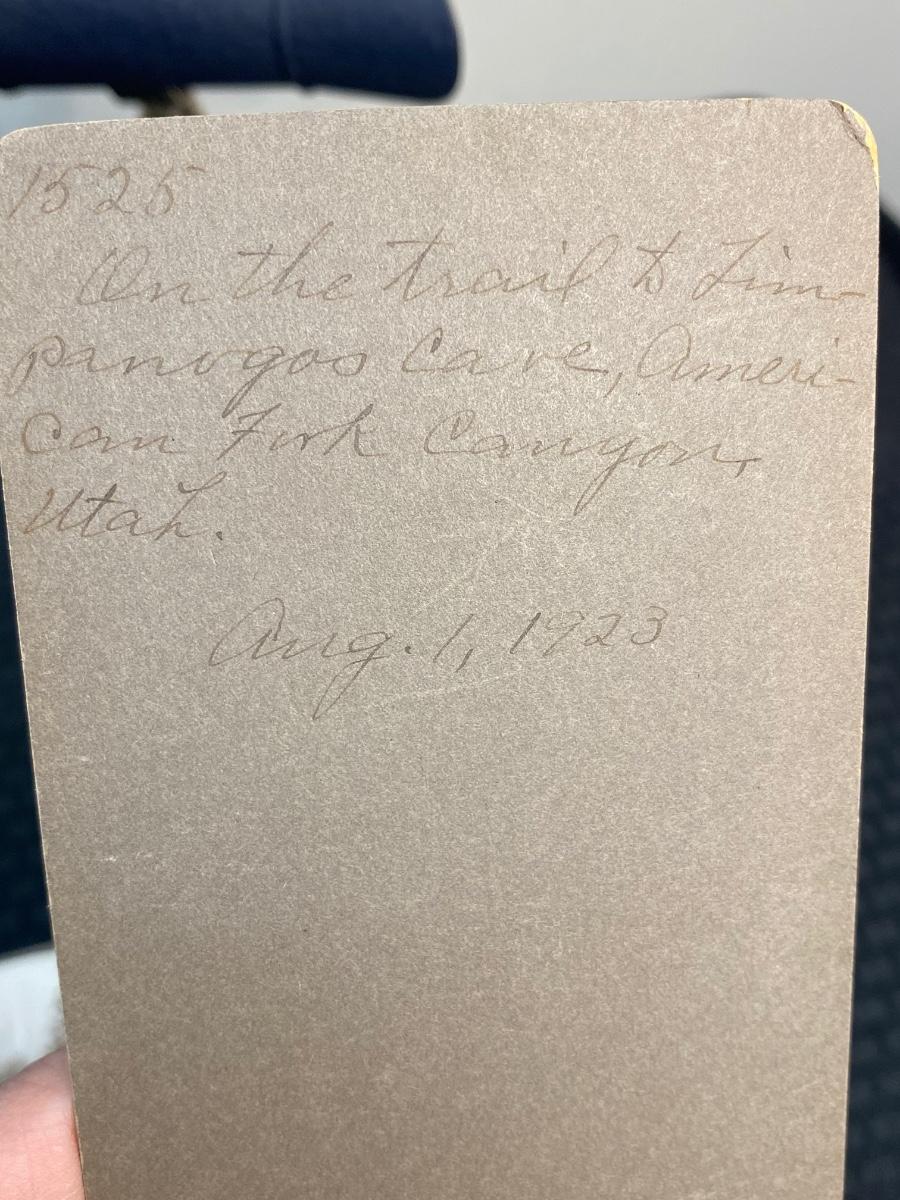 1525
On the trail to Tim-
panogos Cave, Ameri-
can Fork Canyon,
Utah.
Aug. 1, 1923